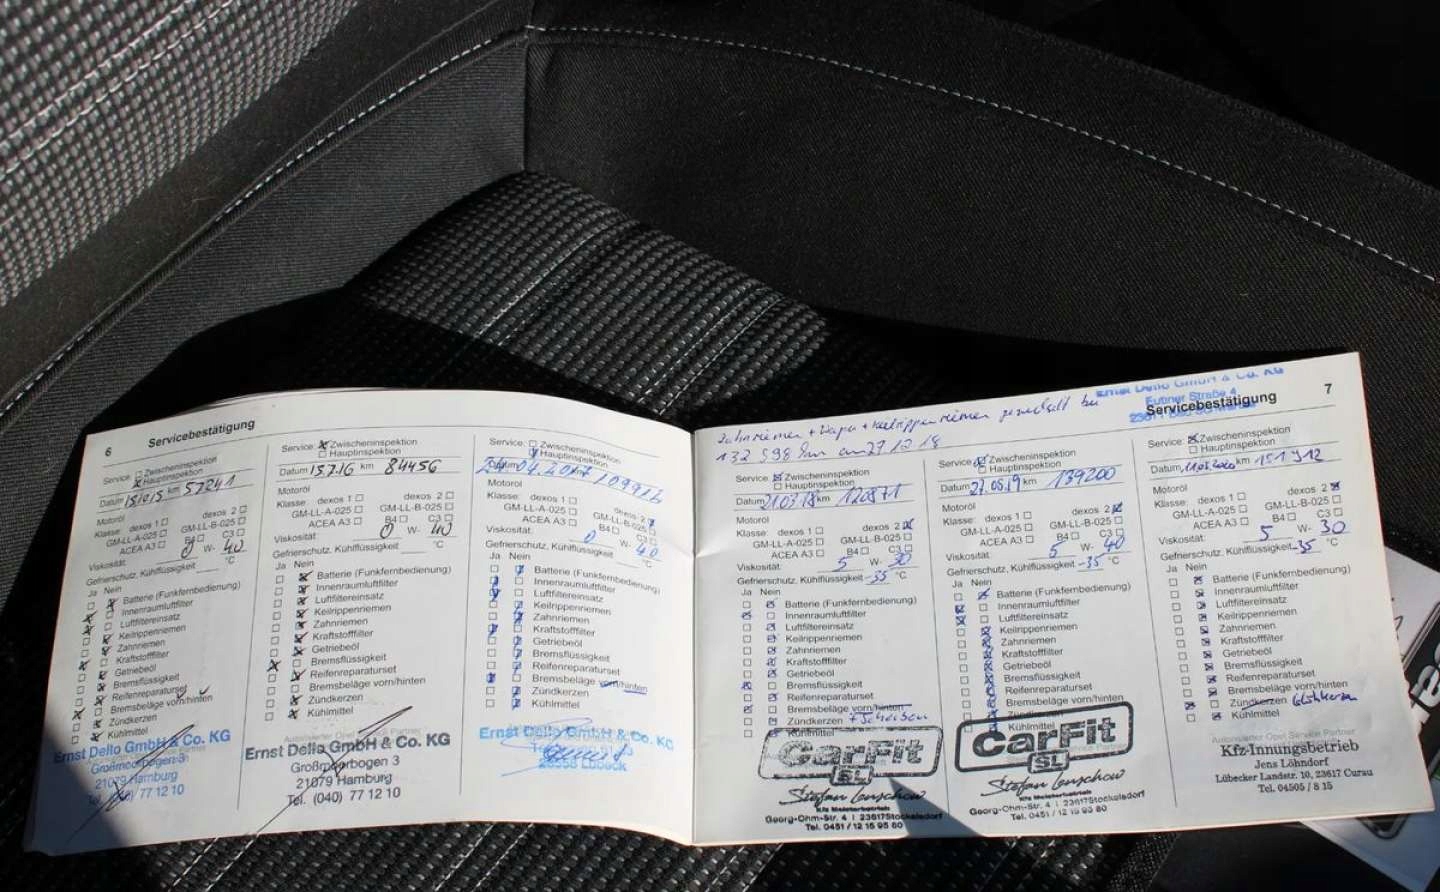 6
Servicebestätigung
Service: Zwischeninspektion
Hauptinspektion
Datum km 57241
Motoröl
Klasse: dexos 1 dexos 2
GM-LL-A-025 GM-LL-B-025
ACEA A3 B4 C3
Viskosität 0 W- 40
Gefrierschutz, Kühlflüssigkeit °C
Ja Nein
Batterie (Funkfernbedienung)
Innenraumluftfilter
Luftfiltereinsatz
Keilrippenriemen
Zahnriemen
Kraftstofffilter
Getriebeöl
Bremsflüssigkeit
Reifenreparaturset
Bremsbeläge vorn/hinten
Zündkerzen
Kühlmittel
Ernst Dello GmbH & Co. KG
Großmoorbogen 3
21079 Hamburg
Tel. (040) 77 12 10
Service: Zwischeninspektion
Hauptinspektion
Datum 13.7.16 km 84456
Motoröl
Klasse: dexos 1 dexos 2
GM-LL-A-025 GM-LL-B-025
ACEA A3 B4 C3
Viskosität: 0 W- 40
Gefrierschutz, Kühlflüssigkeit °C
Ja Nein
Batterie (Funkfernbedienung)
Innenraumluftfilter
Luftfiltereinsatz
Keilrippenriemen
Zahnriemen
Kraftstofffilter
Getriebeöl
Bremsflüssigkeit
Reifenreparaturset
Bremsbeläge vorn/hinten
Zündkerzen
Kühlmittel
Autorisierter Opel Service Partner
Ernst Dello GmbH & Co. KG
Großmoorbogen 3
21079 Hamburg
Tel. (040) 77 12 10
Service: Zwischeninspektion
Hauptinspektion
Datum 04.2017 109916
Motoröl
Klasse: dexos 1 dexos 2
GM-LL-A-025 GM-LL-B-025
ACEA A3 B4 C3
Viskosität: 0 W- 40
Gefrierschutz, Kühlflüssigkeit °C
Ja Nein
Batterie (Funkfernbedienung)
Innenraumluftfilter
Luftfiltereinsatz
Keilrippenriemen
Zahnriemen
Kraftstofffilter
Getriebeöl
Bremsflüssigkeit
Reifenreparaturset
Bremsbeläge vorn/hinten
Zündkerzen
Kühlmittel
Ernst Dello GmbH & Co. KG
Lübeck
7
Servicebestätigung
Ernst Dello GmbH & Co. KG
Eutiner Straße 4
Zahnriemen + Wapu + Keilrippenriemen gewechselt bei
132 598 km am 27.12.18
Service: Zwischeninspektion
Hauptinspektion
Datum 21.03.18 km 120871
Motoröl
Klasse: dexos 1 dexos 2
GM-LL-A-025 GM-LL-B-025
ACEA A3 B4 C3
Viskosität: 5 W- 30
Gefrierschutz, Kühlflüssigkeit -35 °C
Ja Nein
Batterie (Funkfernbedienung)
Innenraumluftfilter
Luftfiltereinsatz
Keilrippenriemen
Zahnriemen
Kraftstofffilter
Getriebeöl
Bremsflüssigkeit
Reifenreparaturset
Bremsbeläge vorn/hinten
Zündkerzen + Scheiben
Kühlmittel
CarFit
SL
Stefan Lenschow
Kfz Meisterbetrieb
Georg-Ohm-Str. 4 | 23617 Stockelsdorf
Tel. 0451 / 12 15 95 80
Service: Zwischeninspektion
Hauptinspektion
Datum 27.05.19 km 139200
Motoröl
Klasse: dexos 1 dexos 2
GM-LL-A-025 GM-LL-B-025
ACEA A3 B4 C3
Viskosität: 5 W- 40
Gefrierschutz, Kühlflüssigkeit -35 °C
Ja Nein
Batterie (Funkfernbedienung)
Innenraumluftfilter
Luftfiltereinsatz
Keilrippenriemen
Zahnriemen
Kraftstofffilter
Getriebeöl
Bremsflüssigkeit
Reifenreparaturset
Bremsbeläge vorn/hinten
Zündkerzen
Kühlmittel
CarFit
SL
Stefan Lenschow
Kfz Meisterbetrieb
Georg-Ohm-Str. 4 | 23617 Stockelsdorf
Tel. 0451 / 12 15 95 80
Service: Zwischeninspektion
Hauptinspektion
Datum 11.05.2020 km 151 912
Motoröl
Klasse: dexos 1 dexos 2
GM-LL-A-025 GM-LL-B-025
ACEA A3 B4 C3
Viskosität: 5 W- 30
Gefrierschutz, Kühlflüssigkeit -35 °C
Ja Nein
Batterie (Funkfernbedienung)
Innenraumluftfilter
Luftfiltereinsatz
Keilrippenriemen
Zahnriemen
Kraftstofffilter
Getriebeöl
Bremsflüssigkeit
Reifenreparaturset
Bremsbeläge vorn/hinten
Zündkerzen Glühkerzen
Kühlmittel
Autorisierter Opel Service Partner
Kfz-Innungsbetrieb
Jens Löhndorf
Lübecker Landstr. 10, 23617 Curau
Tel. 04505 / 8 15